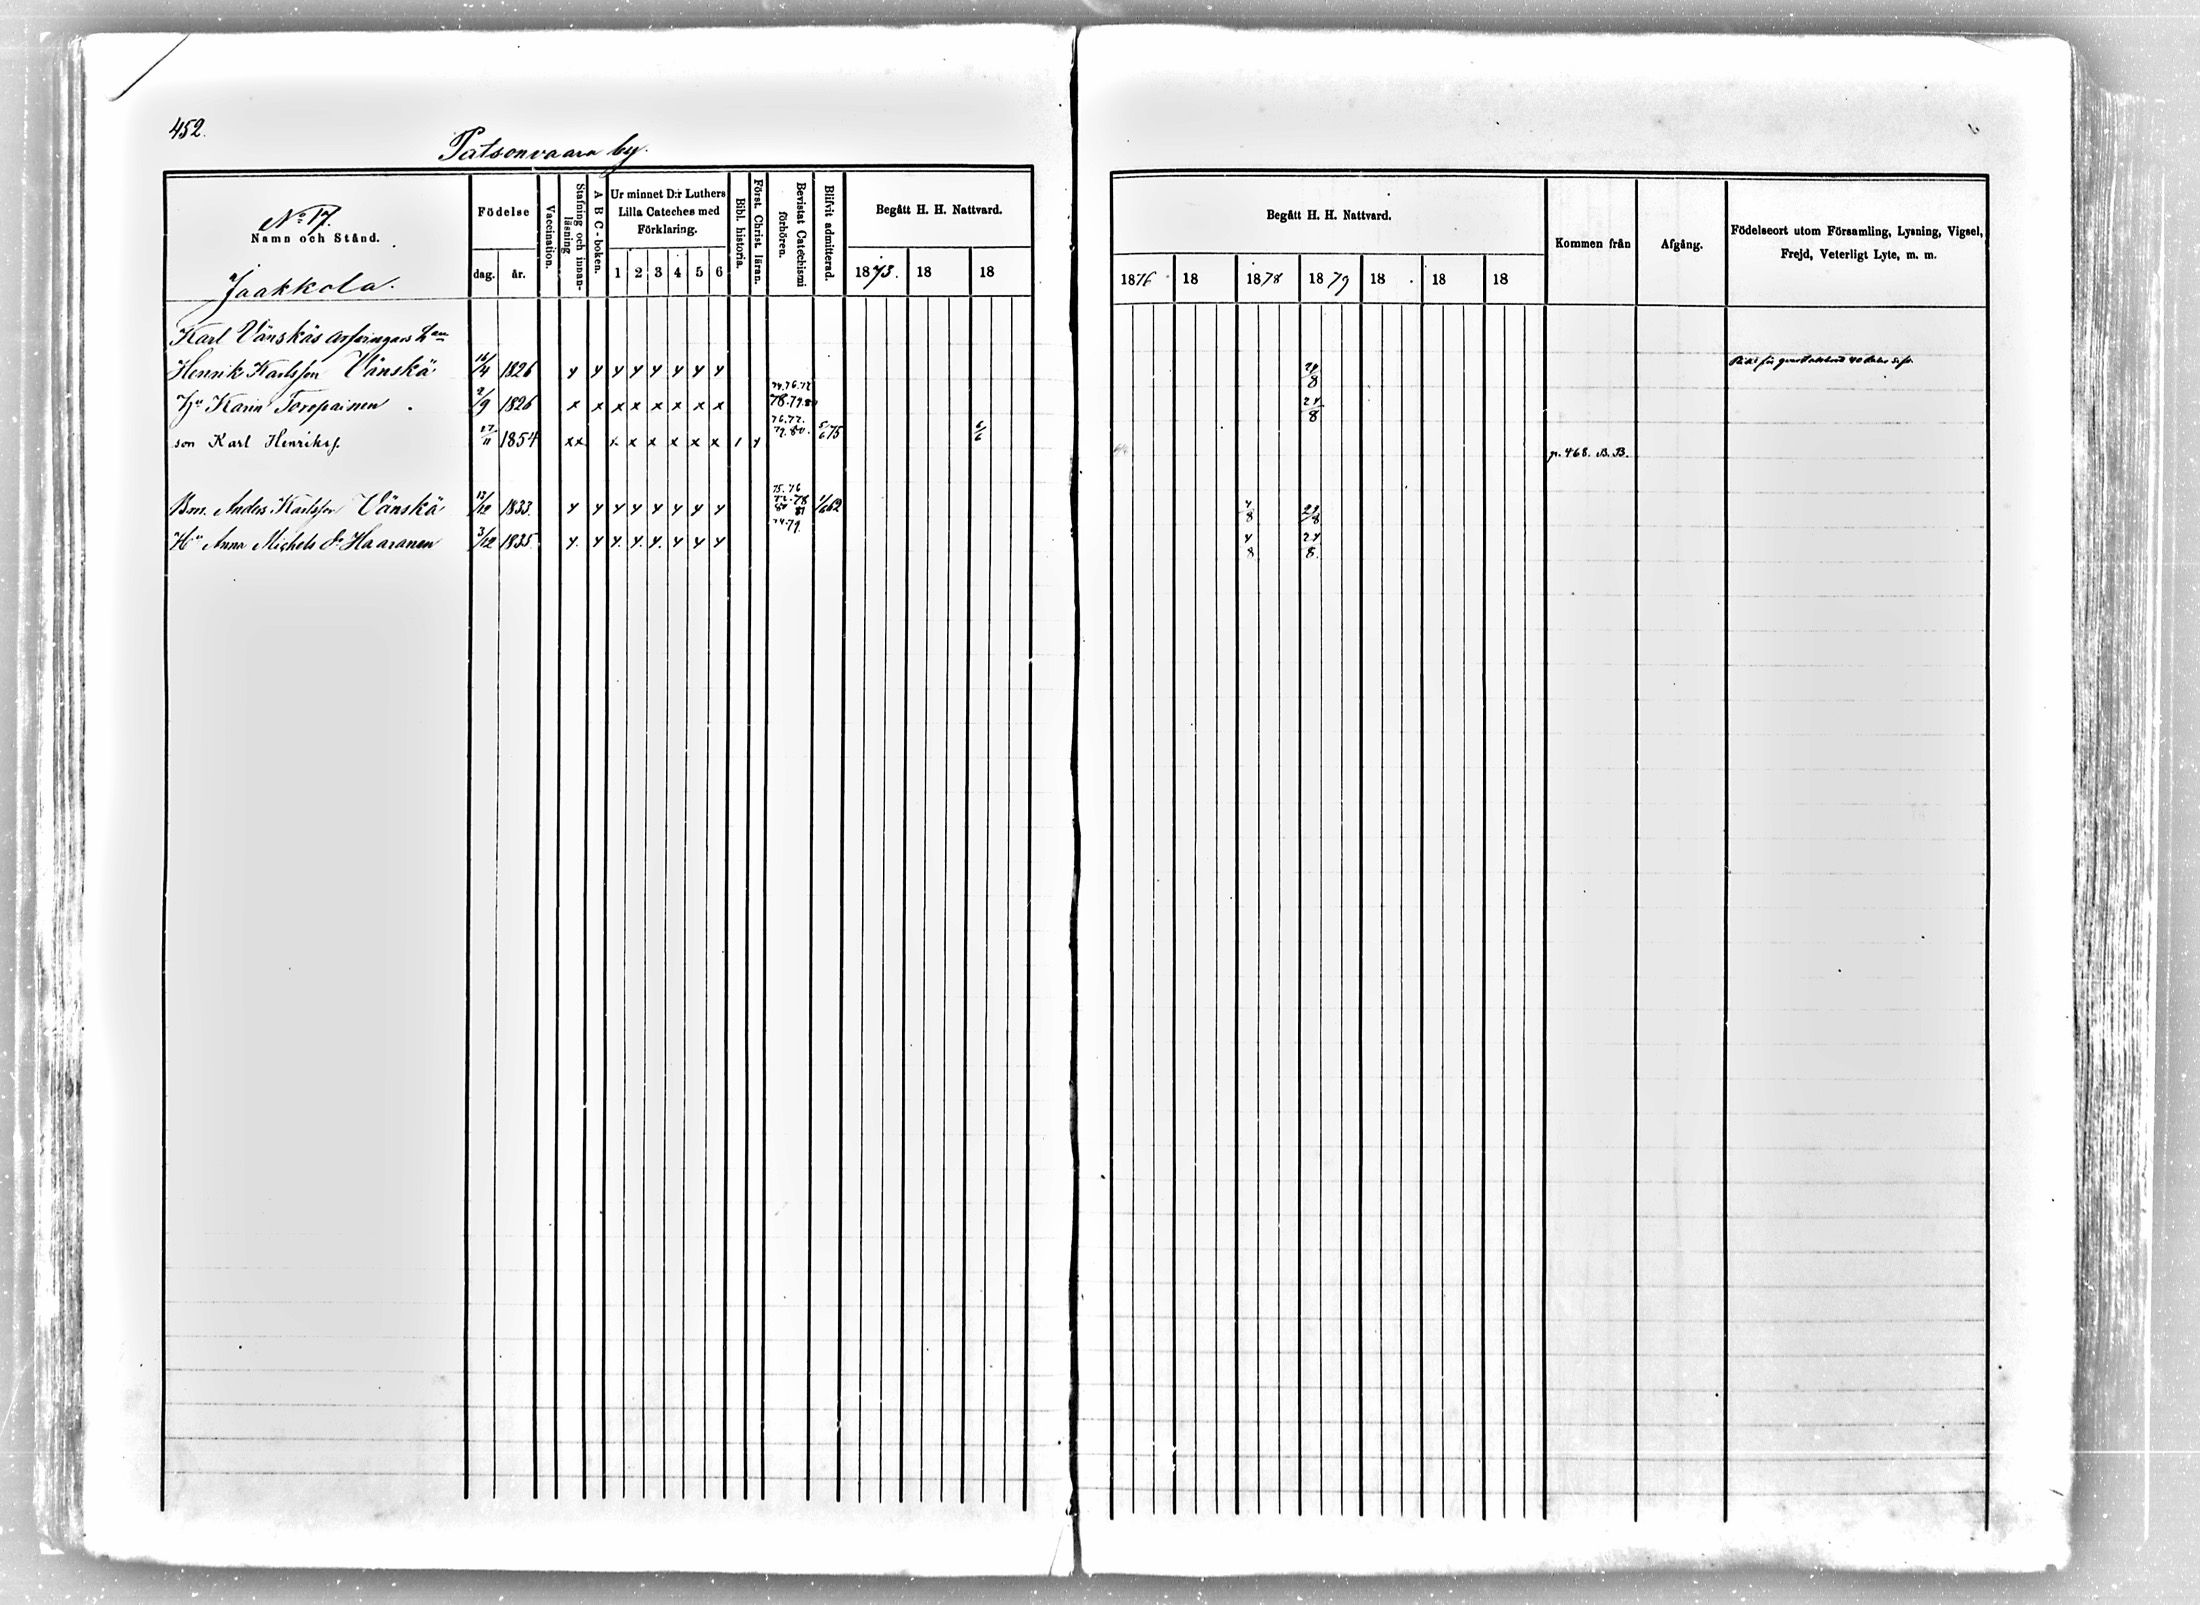 452.
Patsonvaara by.
No 17.
Namn och Stånd.
Jaakkola.
Födelse
dag. år.
Vaccination.
Stafning och innanläsning
A B C-boken.
Ur minnet D:r Luthers
Lilla Cateches med
Förklaring.
1 2 3 4 5 6
Bibl. historia.
Först. Christ. läran.
Bevistat Catechismi förhören.
Blifvit admitterad.
Begått H. H. Nattvard.
1873. 18 18
Begått H. H. Nattvard.
1876 18 1878 1879 18 18 18
Kommen från
Afgång.
Födelseort utom Församling, Lysning, Vigsel,
Frejd, Veterligt Lyte, m. m.
Karl Vänskäs arfvingars
Henrik Karlsson Vänskä 16/4 1826 24/8
Hu Karin Toropainen 2/9 1826 78.79. 24/8
son Karl Henrikss. 27/11 1854 76.77. 79.80. 5/6 75 6/6 p. 468. B. B.
Bm. Anders Karlsson Vänskä 12/12 1833. 75.76 77.78 1/6 62 4/8 24/8
Hu Anna Michels dr Haaranen 3/12 1835. 79. 4/8 24/8.